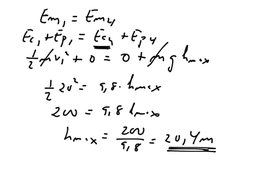 Em₁ = Em₄
Ec₁ + Ep₁ = Ec₄ + Ep₄
½ m v₁² + 0 = 0 + m g hmax
½ 20² = 9,8 · hmax
200 = 9,8 hmax
hmax = 200/9,8 = 20,4m